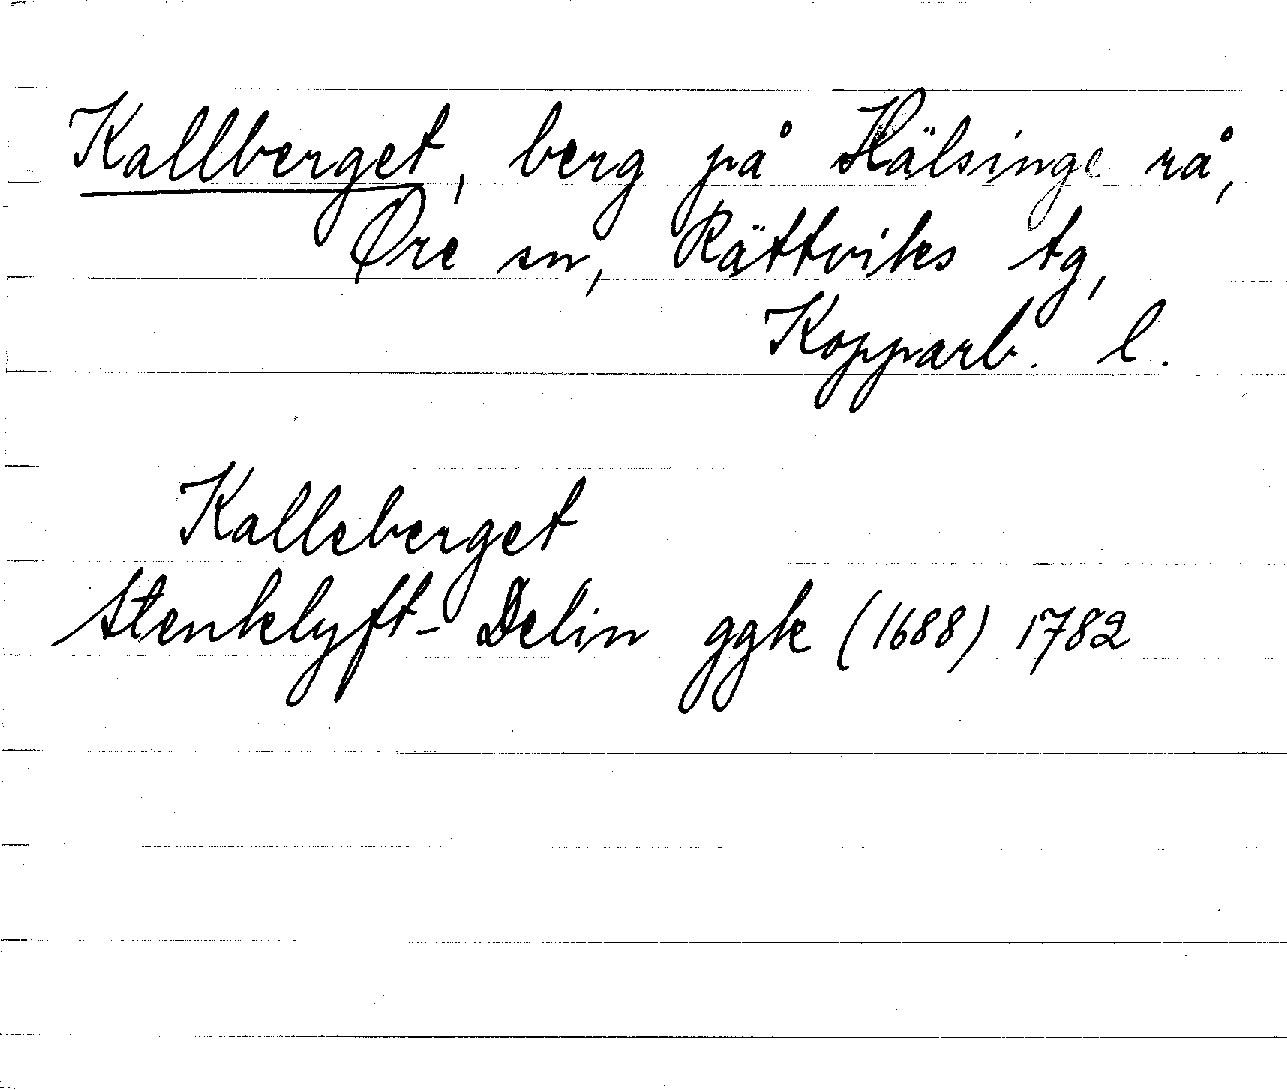 Kallberget, berg på Hälsinge rå,
Ore sn, Rättviks tg,
Kopparb. l.
Kalleberget
Stenklyft-Delin ggk (1688) 1782